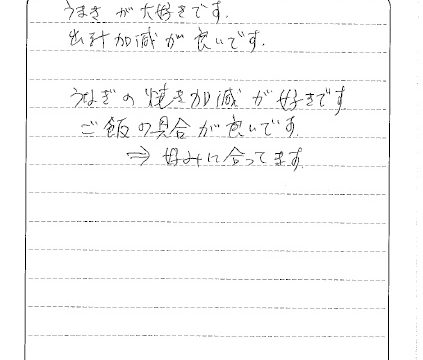 うまきが大好きです.
出汁加減が良いです.
うなぎの焼き加減が好きです
ご飯の具合が良いです.
⇒ 好みに合ってます.